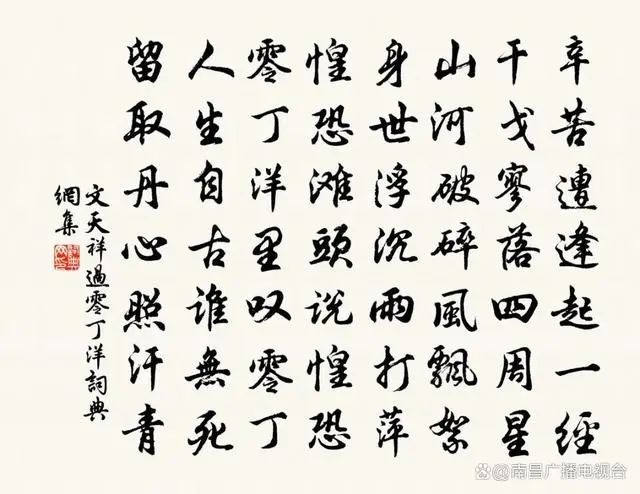 辛苦遭逢起一经
干戈寥落四周星
山河破碎風飄絮
身世浮沉雨打萍
惶恐滩頭说惶恐
零丁洋里叹零丁
人生自古谁無死
留取丹心照汗青
文天祥過零丁洋詞典
網集
南昌广播电视台